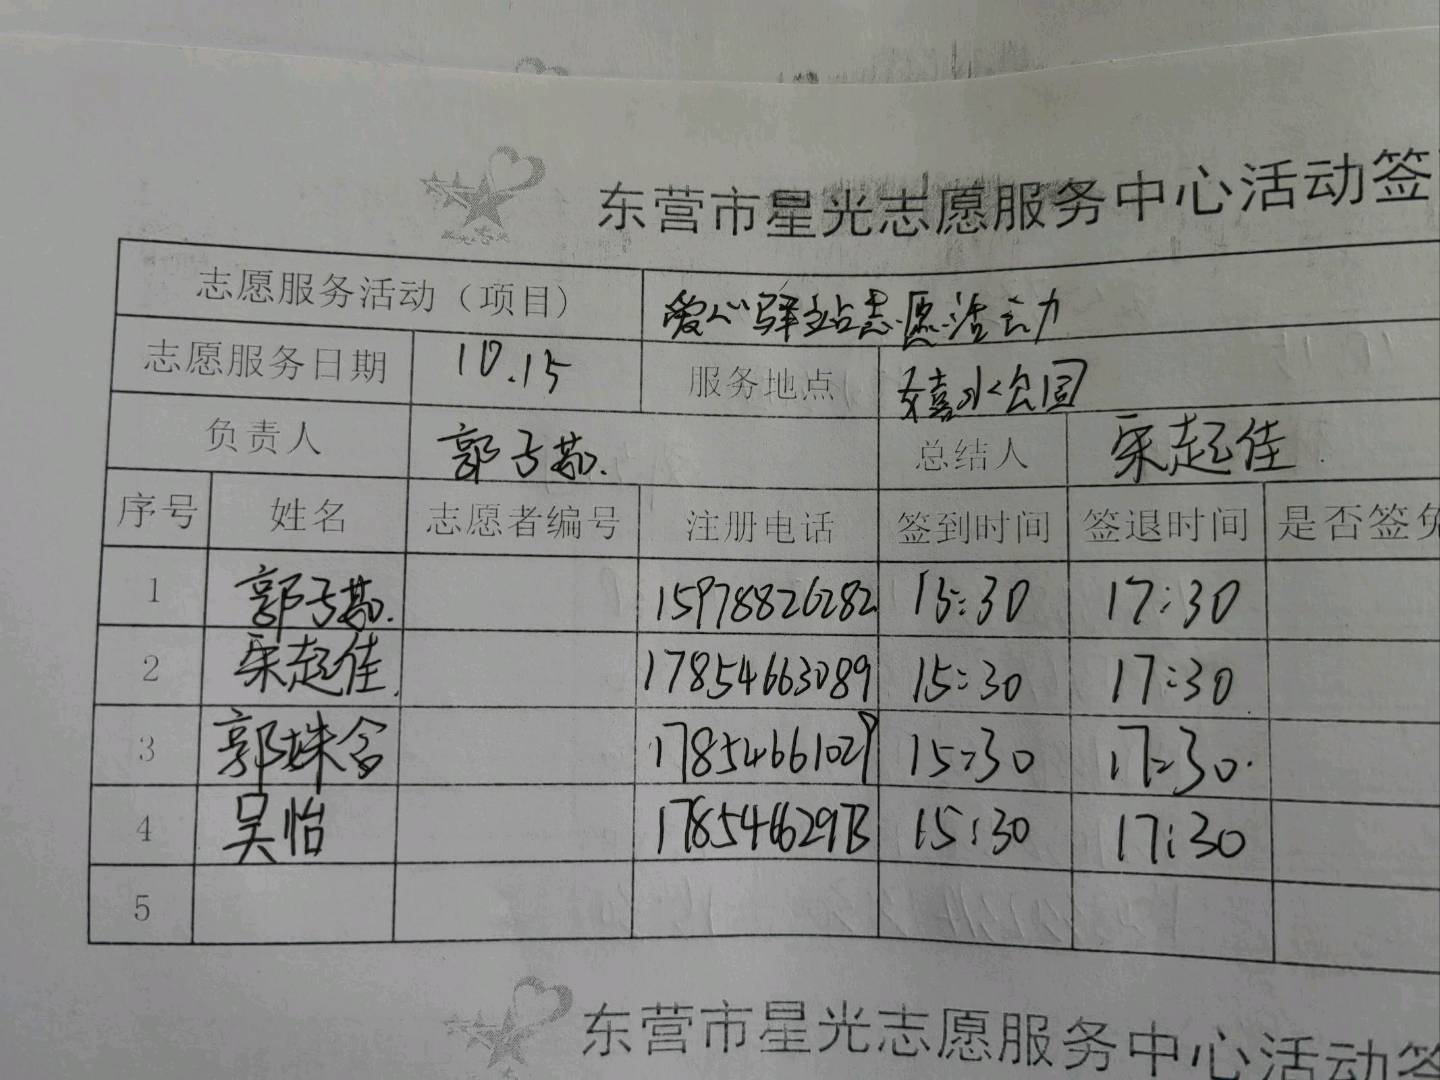 东营市星光志愿服务中心活动签
志愿服务活动（项目） 爱心驿站志愿活动
志愿服务日期 10.15 服务地点 水公园
负责人 郭子 总结人 宋起佳
序号 姓名 志愿者编号 注册电话 签到时间 签退时间 是否签免
1 郭子 15978826282 15:30 17:30
2 宋起佳 17854663089 15:30 17:30
3 郭姝含 17854661029 15:30 17:30
4 吴怡 15:30 17:30
5
东营市星光志愿服务中心活动签